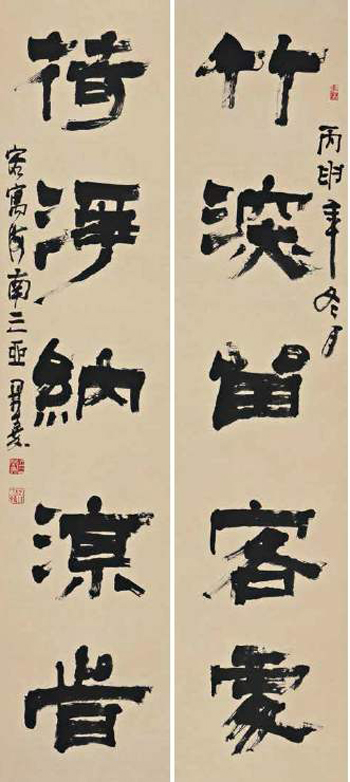 丙申年冬月
竹深留客處
荷淨納涼旹
客寓海南三亞